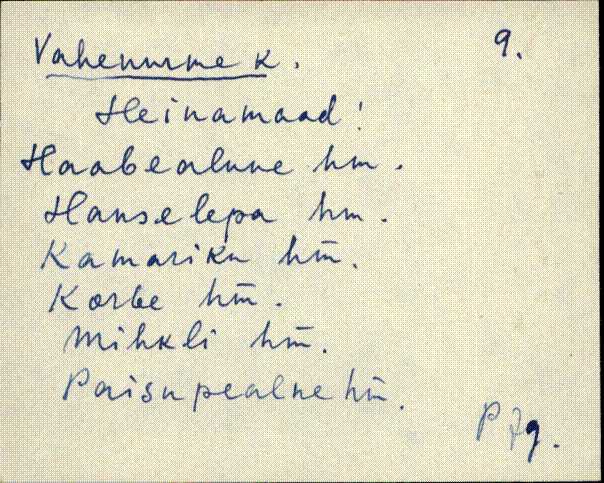 Vahenurme k.
9.
Heinamaad!
Haabealune hm.
Hanselepa hm.
Kamariku hm.
Korbe hm.
Mihkli hm.
Paisupealne hm.
P 79.